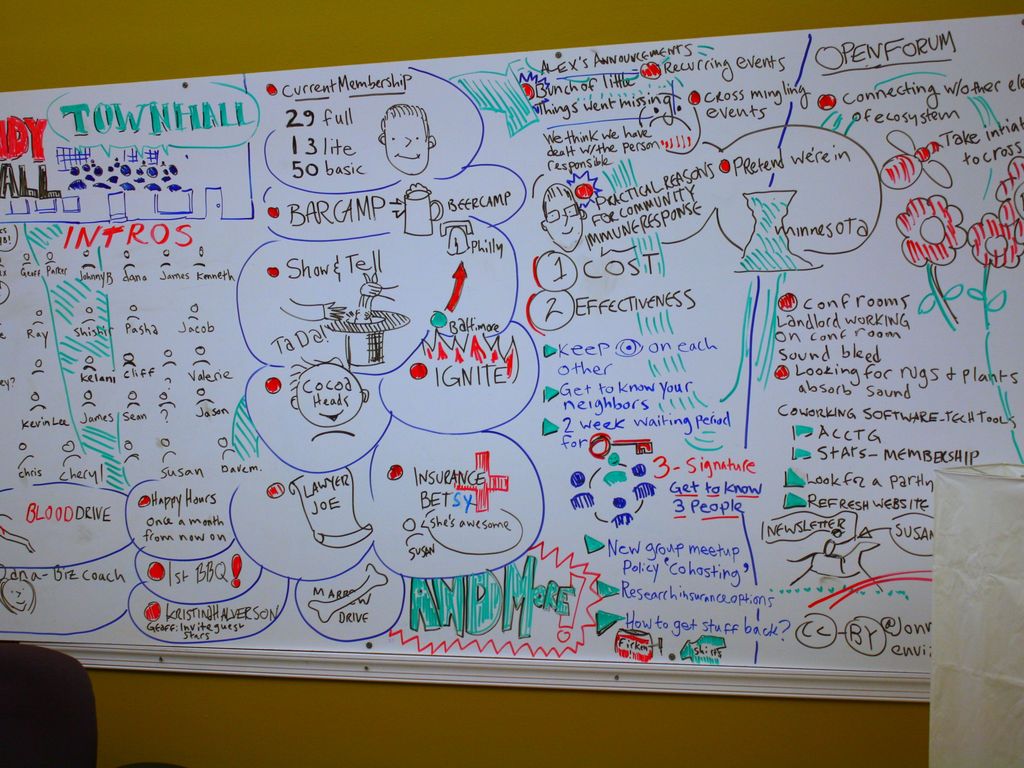 TOWNHALL
INTROS
Geoff Parker JohnnyB dana James Kenneth
Ray Shishir Pasha Jacob
Kelani Cliff ? Valerie
Kevin Lee James Sean ? Jason
Chris Cheryl Susan Dave m.
BLOOD DRIVE
Dana-Biz coach
Happy Hours
once a month
from now on
1st BBQ!
KRISTINA HALVERSON
Geoff: Invite guest
stars
Current Membership
29 full
13 lite
50 basic
BARCAMP
BEERCAMP
Philly
Show & Tell
TaDa!
Baltimore
IGNITE
Cocoa
Heads
LAWYER
JOE
INSURANCE
BETSY
She's awesome
SUSAN
MARROW
DRIVE
AND MORE!
ALEX'S ANNOUNCEMENTS
Bunch of little
things went missing
We think we have
dealt w/the person
responsible
Recurring events
Cross mingling
events
PRACTICAL REASONS
FOR COMMUNITY
IMMUNE RESPONSE
Pretend we're in
Minnesota
1 COST
2 EFFECTIVENESS
Keep on each
other
Get to know your
neighbors
2 week waiting period
for
3-Signature
Get to know
3 People
New group meetup
Policy "cohosting"
Research insurance options
How to get stuff back?
OPEN FORUM
Connecting w/other
of ecosystem
Take
to cross
Conf rooms
Landlord WORKING
on conf room
sound bleed
Looking for rugs & plants
absorb sound
COWORKING SOFTWARE-TECH TOOLS
ACCTG
STATS-MEMBERSHIP
Look for a
REFRESH WEBSITE
NEWSLETTER
CC-BY